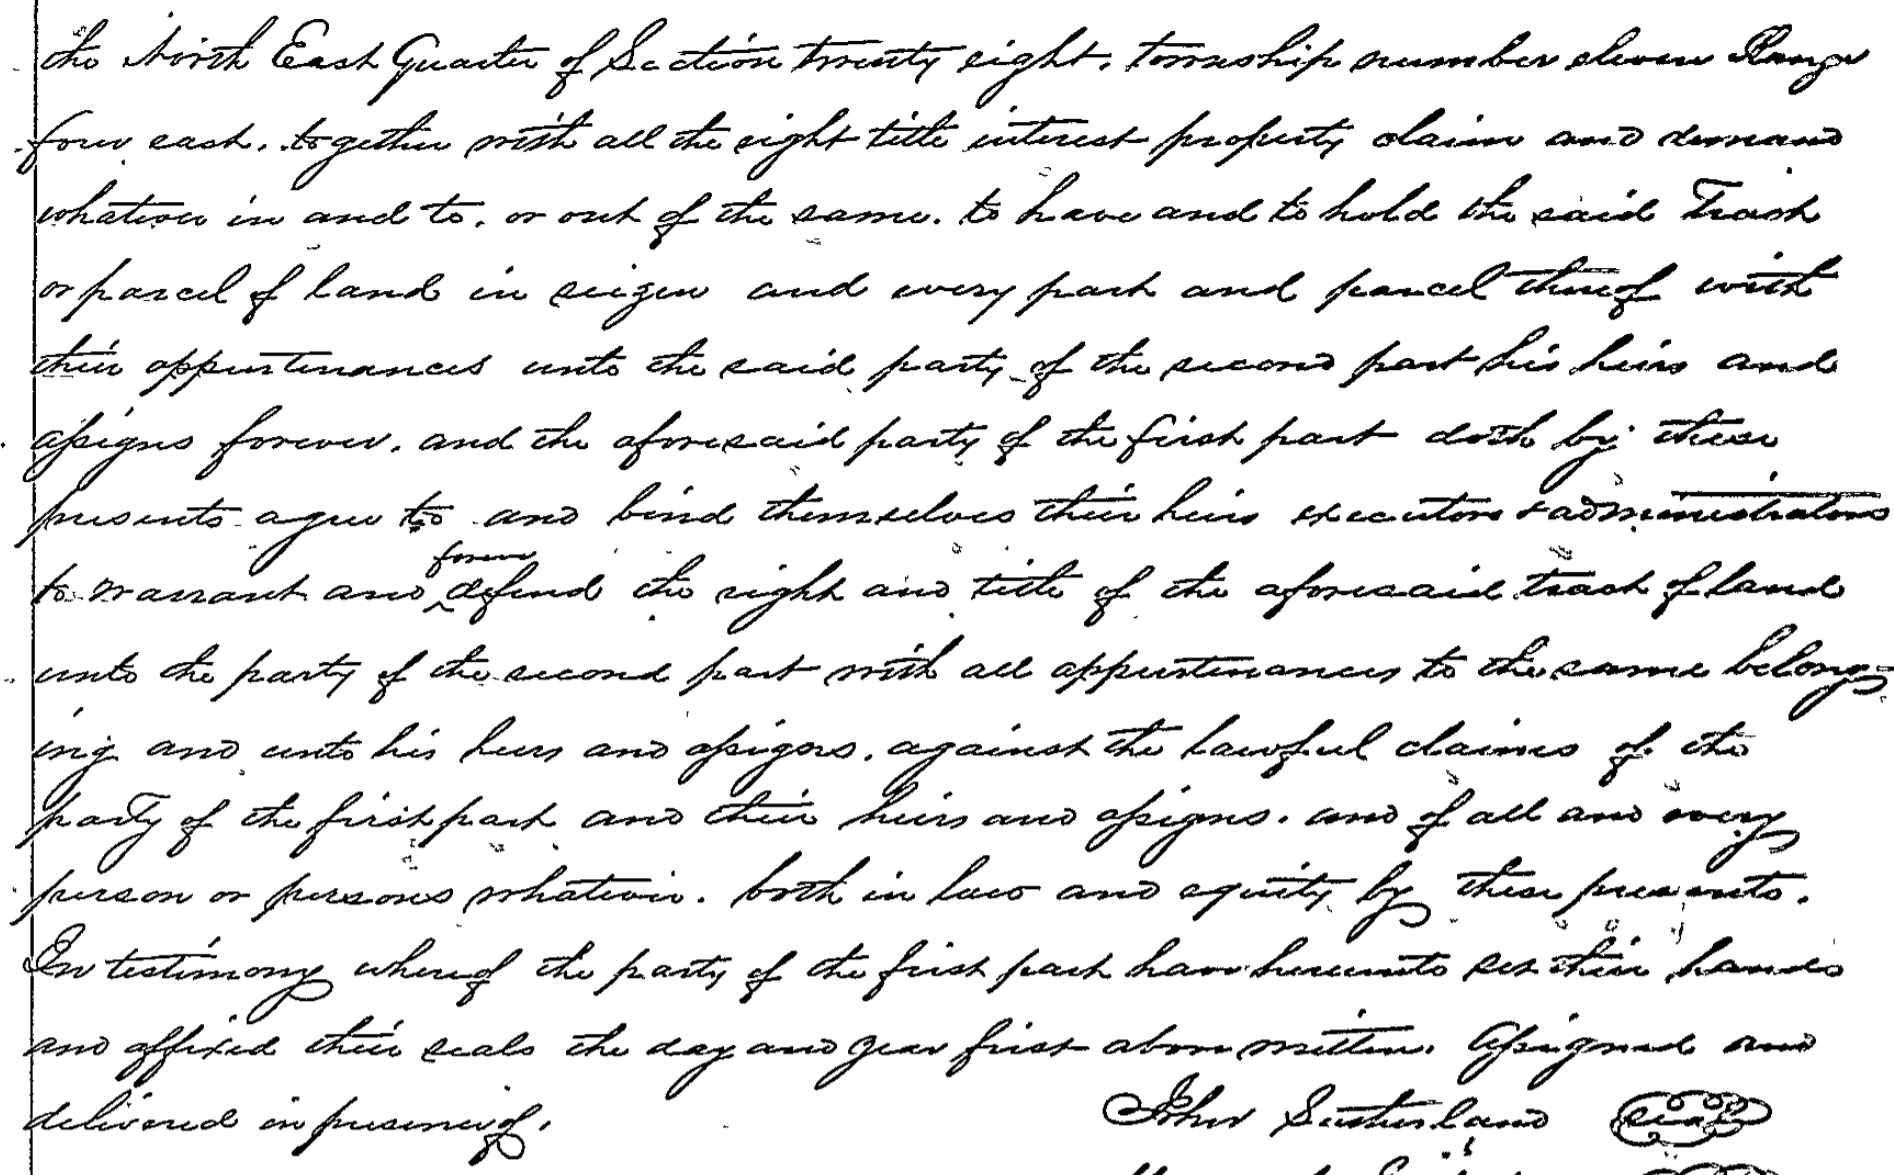 the North East Quarter of Section twenty eight. township number eleven Range
four east. together with all the right title interest property claim and demand
whatever in and to. or out of the same. to have and to hold the said Track
or parcel of land in seizen and every part and parcel thereof with
their appurtenances unto the said party of the second part his heirs and
assigns forever. and the aforesaid party of the first part doth by these
presents agree to and bind themselves their heirs executors & administrators
to warrant and forever defend the right and title of the aforesaid track of land
unto the party of the second part with all appurtenances to the same belong=
ing and unto his heirs and assigns. against the lawful claims of the
party of the first part and their heirs and assigns. and of all and every
person or persons whatever. both in law and equity by these presents.
In testimony whereof the party of the first part have hereunto set their hands
and affixed their seals the day and year first above written. Assigned and
delivered in presence of.
John Sutherland seal